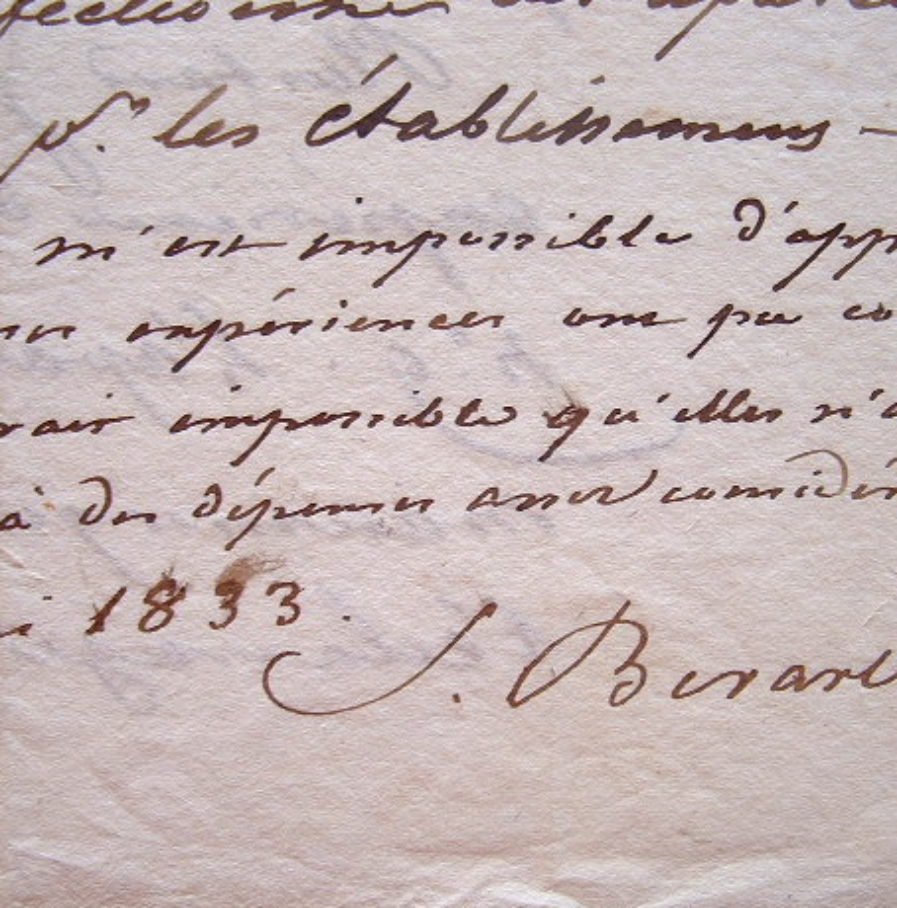 pr. les établissemens —
m'est impossible d'app
expériences ont pu co
rait impossible qu'elles n'a
à des dépenses assez considér
i 1833.
J. Berard